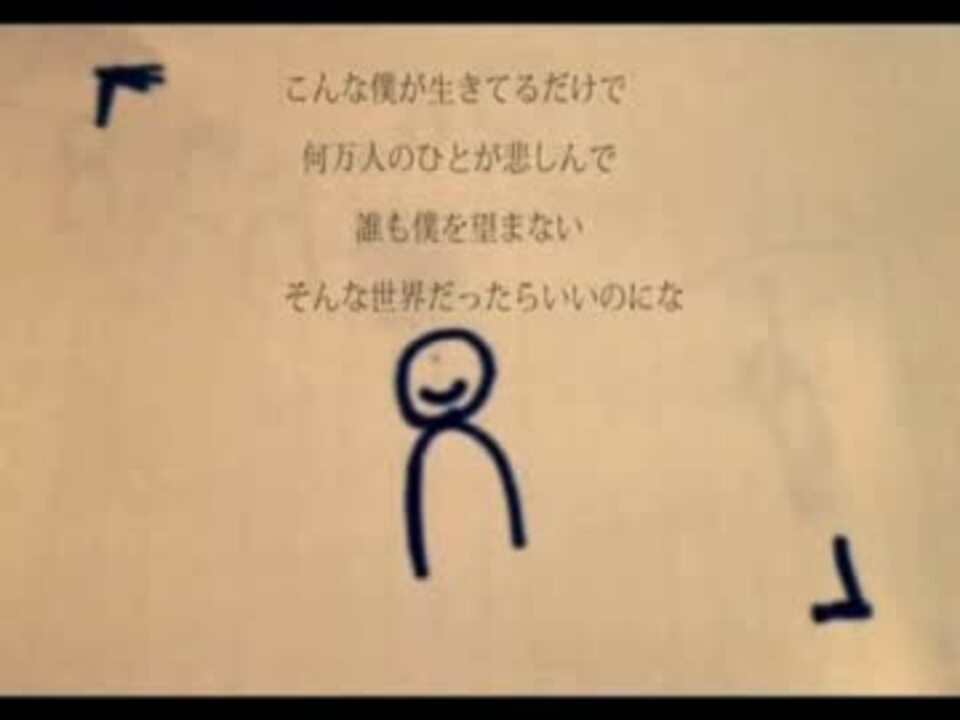 こんな僕が生きてるだけで
何万人のひとが悲しんで
誰も僕を望まない
そんな世界だったらいいのにな